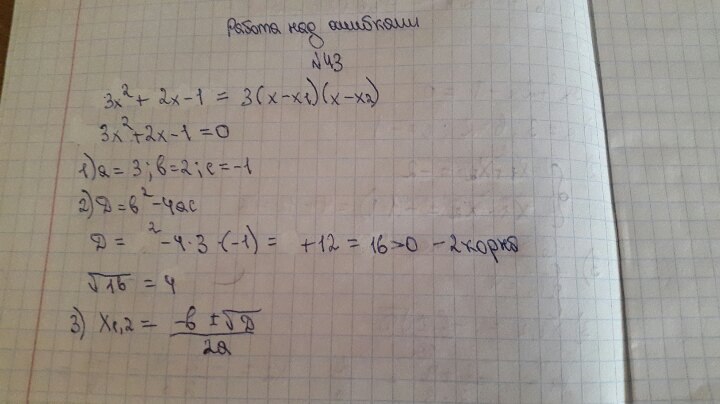 Работа над ошибками
№43
3x² + 2x - 1 = 3(x - x₁)(x - x₂)
3x² + 2x - 1 = 0
1) a = 3; b = 2; c = -1
2) D = b² - 4ac
D = ² - 4·3·(-1) = +12 = 16 > 0 - 2 корня
√16 = 4
3) x₁,₂ = (-b ± √D) / 2a